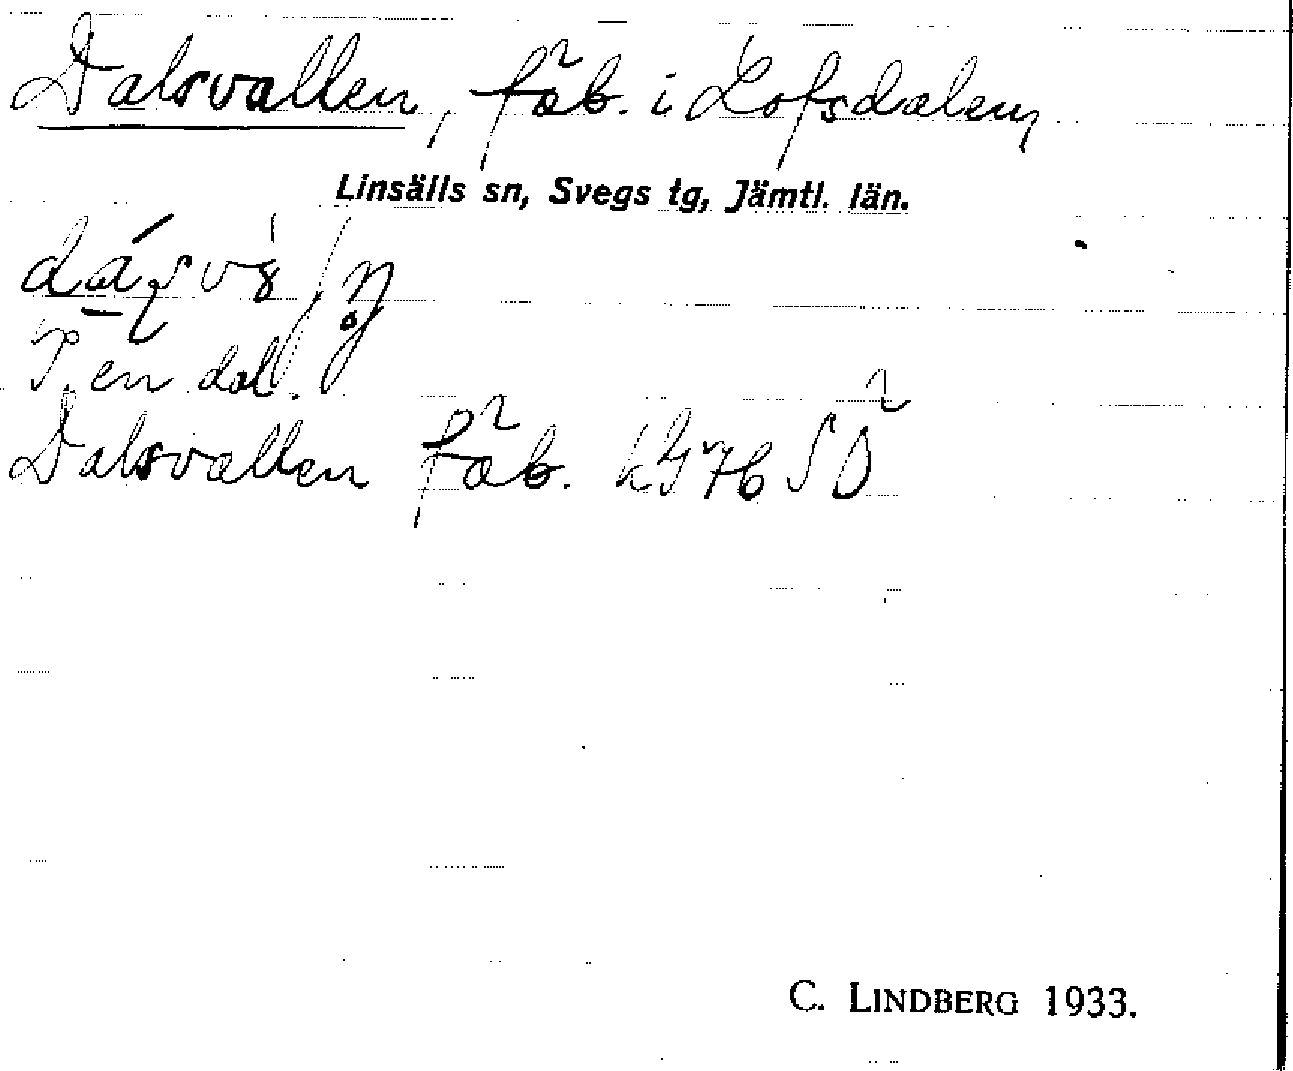 Dalsvallen, fäb. i Lofsdalen,
Linsälls sn, Svegs tg, Jämtl. län.
I en dal.
Dalsvallen fäb. 76 SÖ
C. LINDBERG 1933.